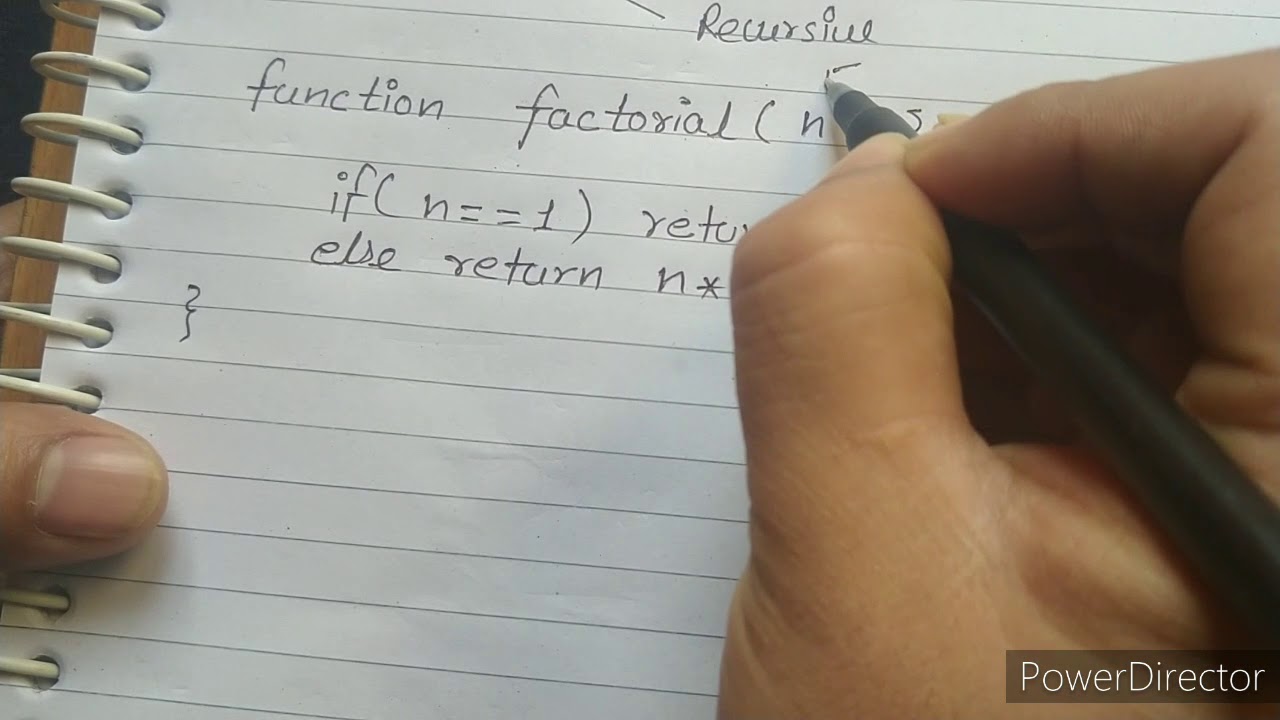 Recursive
function factorial ( n
if( n==1 ) retu
else return n*
}
PowerDirector